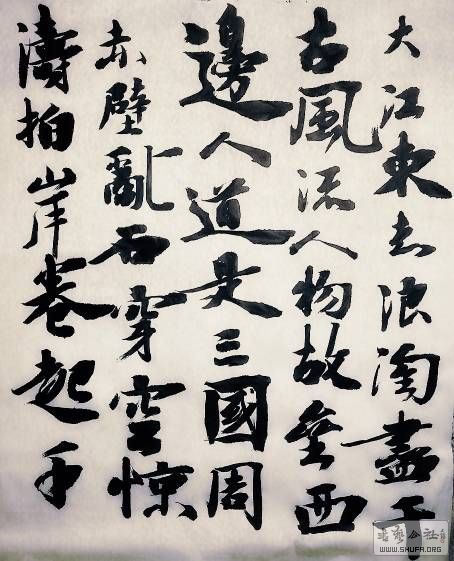 大江東去浪淘盡千
古風流人物故壘西
邊人道是三國周
赤壁亂石穿空惊
濤拍岸卷起千
公社
WWW.SHUFA.ORG